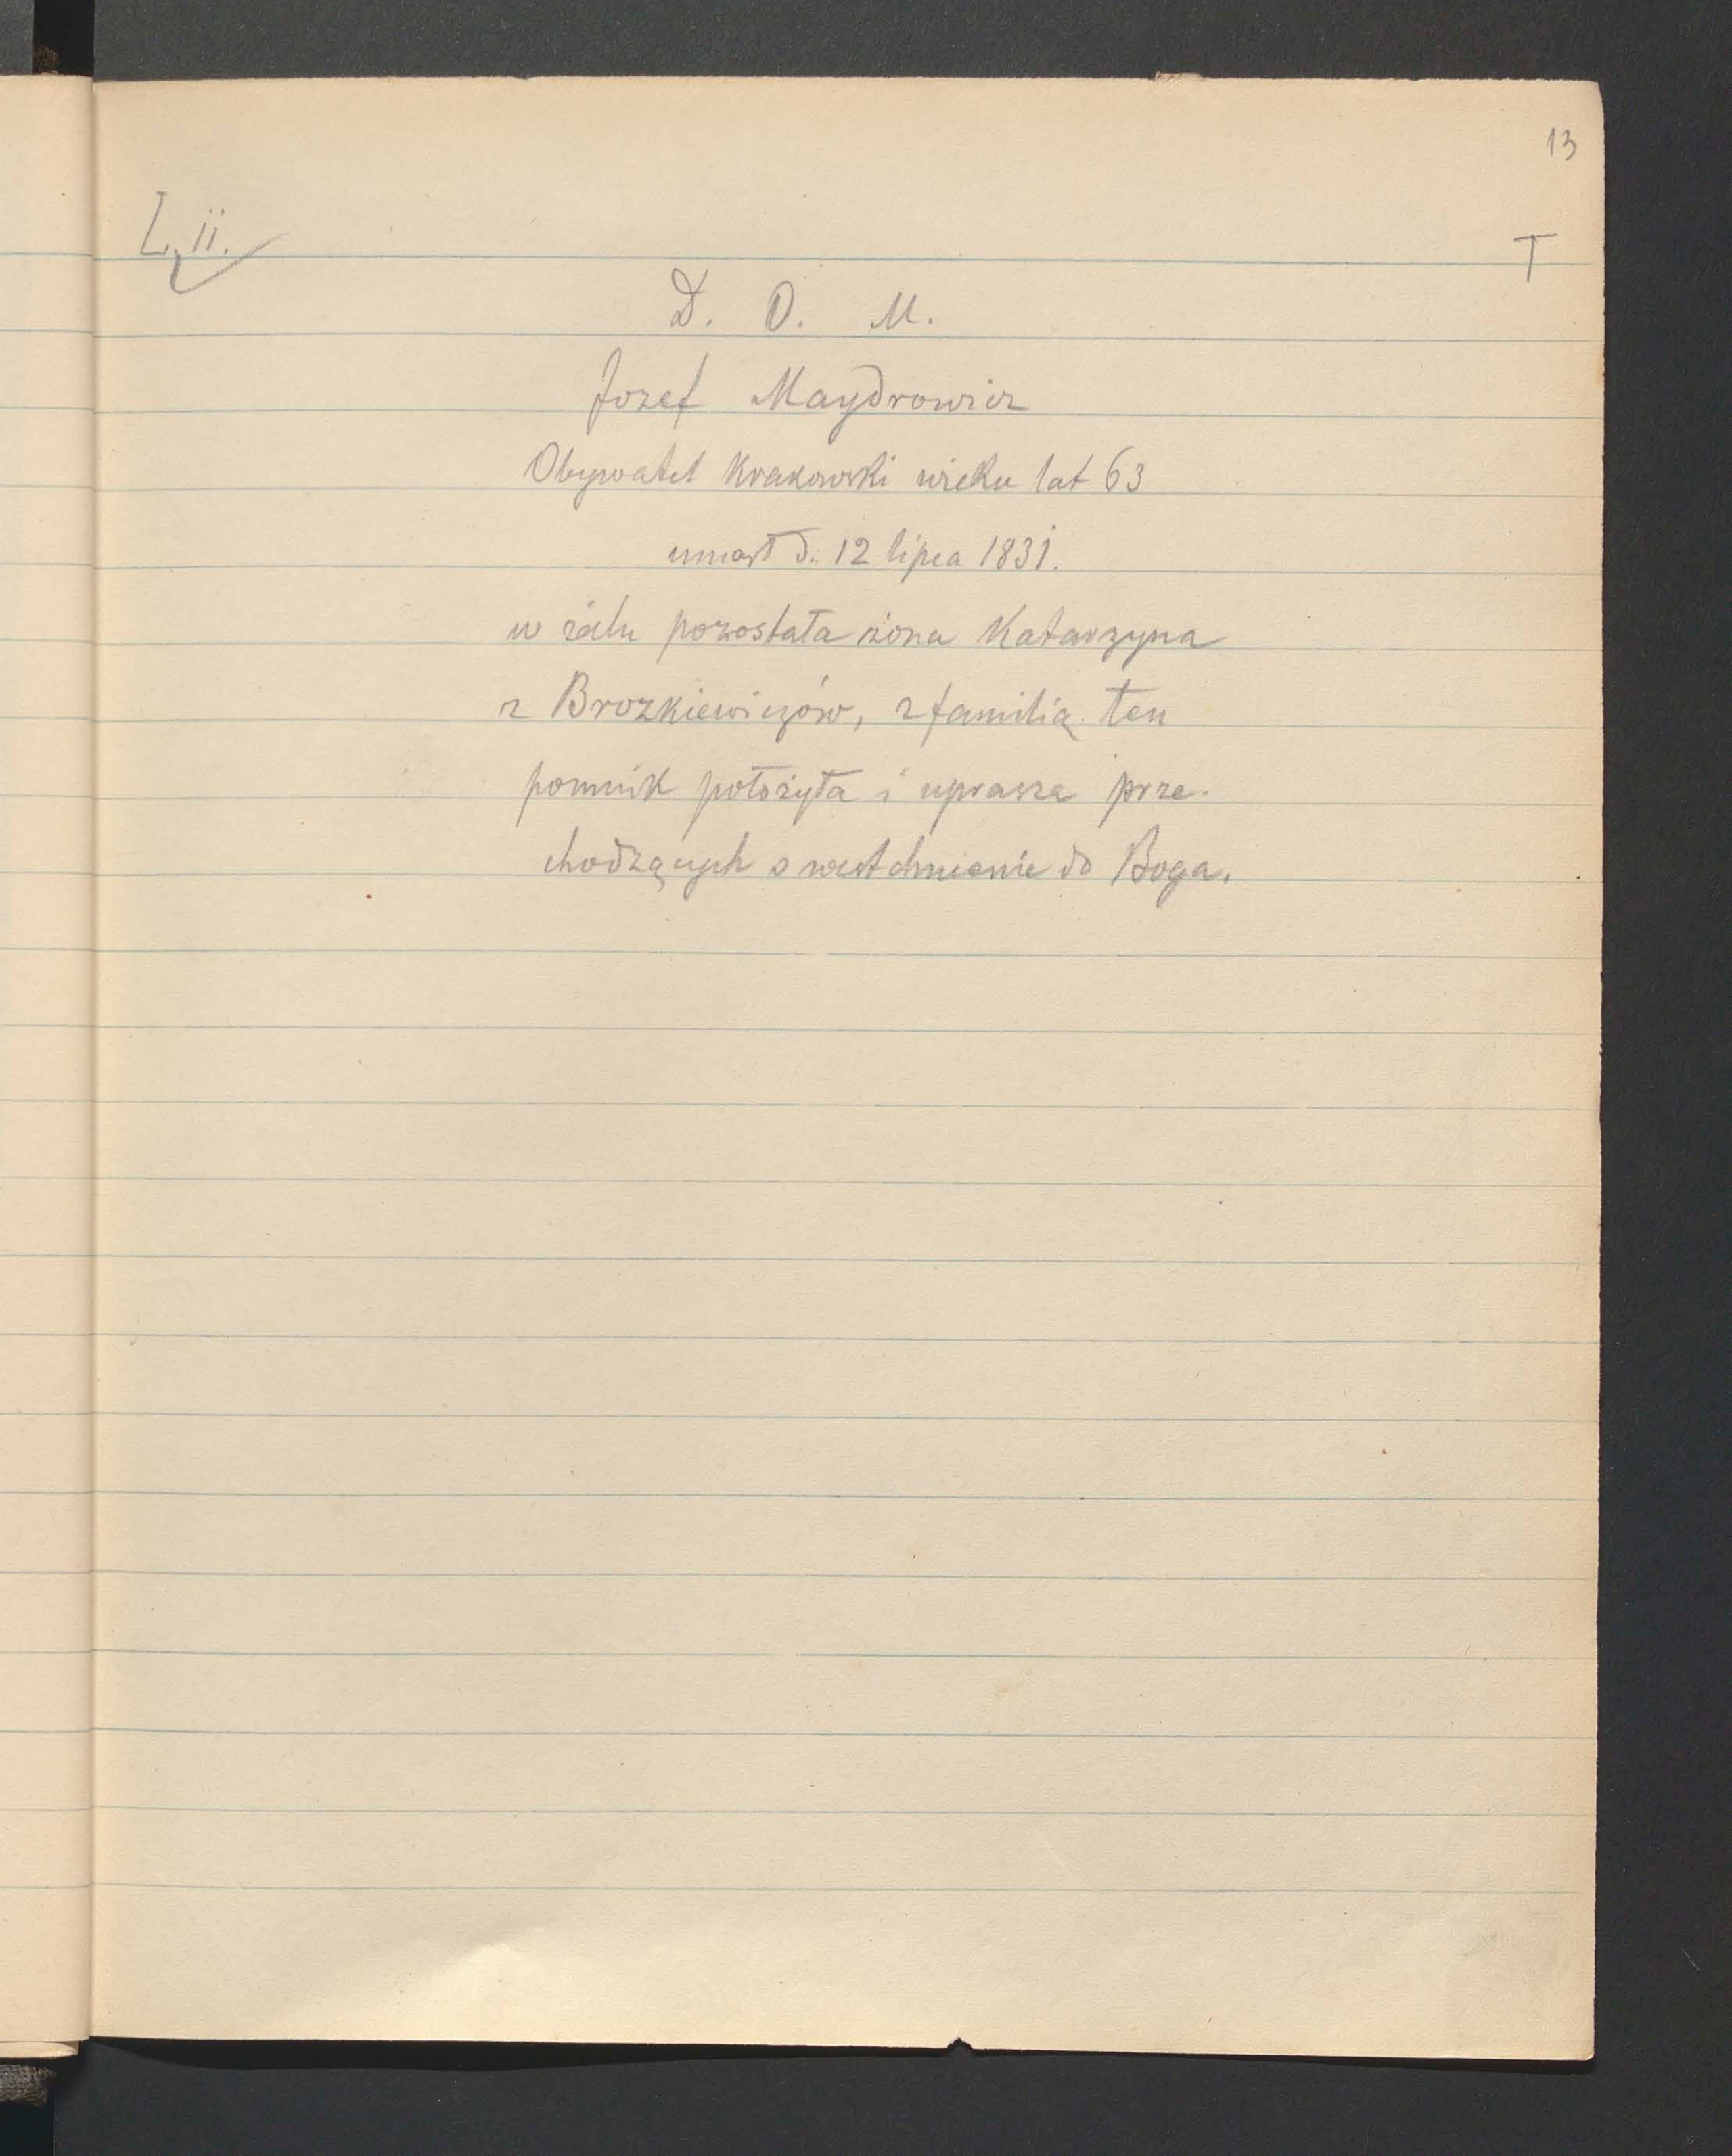 13
L. ii.
T
D. O. M.
Jozef Maydrowicz
Obywatel Krakowski wieku lat 63
umarł d. 12 lipca 1831.
w żalu pozostała żona Katarzyna
z Brozkiewiczów, z familią ten
pomnik położyła i uprasza prze-
chodzących o westchnienie do Boga.